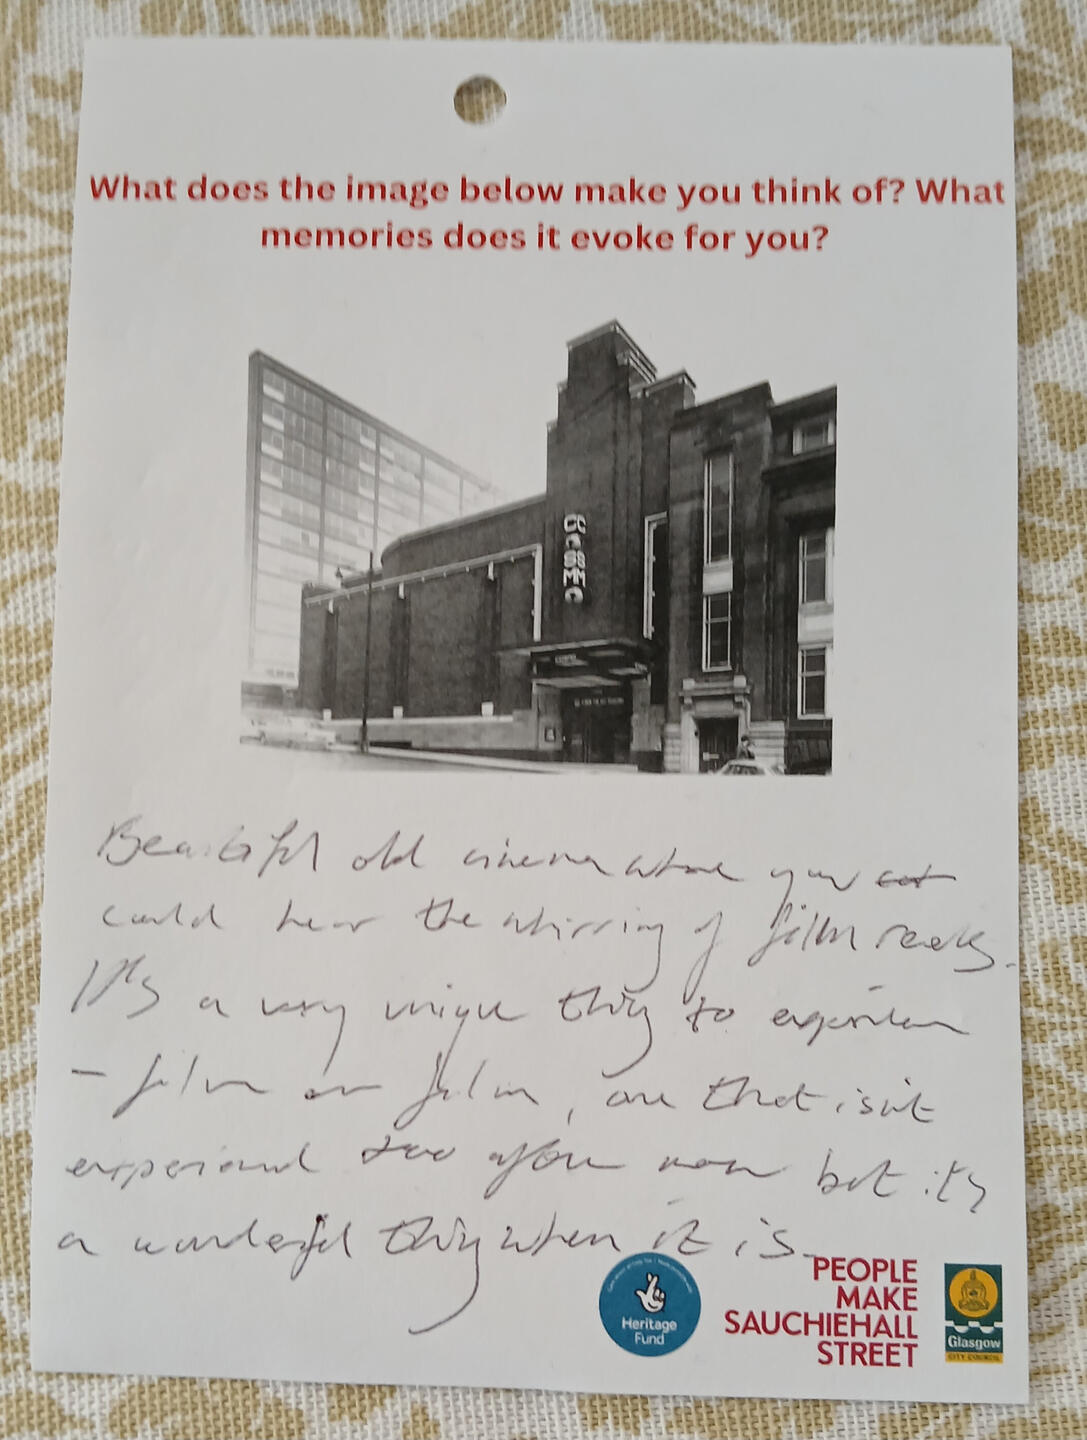 What does the image below make you think of? What
memories does it evoke for you?
COSMO
Beautiful old cinema where you
could hear the whirring of film reels.
It's a very unique thing to experience
- film on film, one that isn't
experienced too often now but it's
a wonderful thing when it is.
Heritage
Fund
PEOPLE
MAKE
SAUCHIEHALL
STREET
Glasgow
CITY COUNCIL